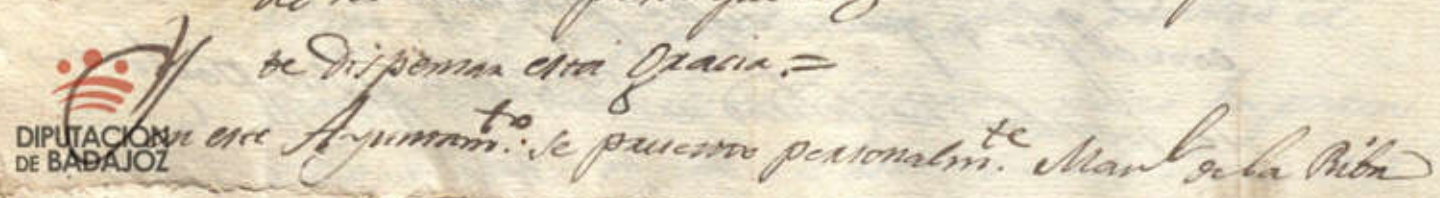 se dispensan esta Gracia.=
DIPUTACIÓN
DE BADAJOZ
En este Ayuntam.to: se presento personalm.te Man.l de la Riba